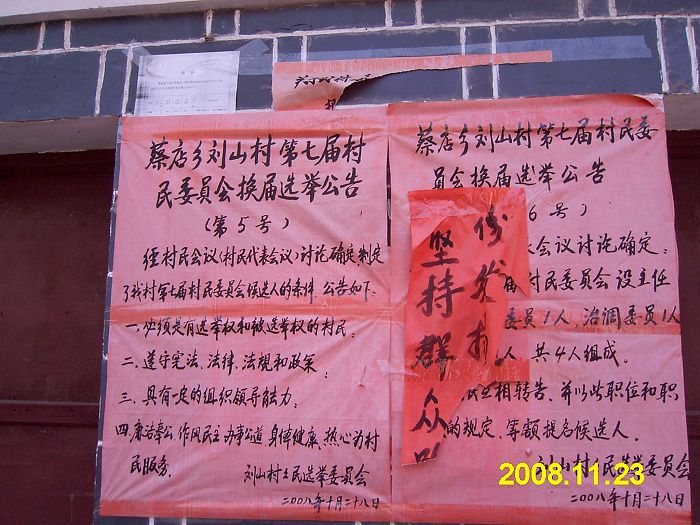 蔡店乡刘山村第七届村
民委员会换届选举公告
(第5号)
经村民会议(村民代表会议)讨论确定,制定
了我村第七届村民委员会候选人的条件,公告如下:
一、必须是有选举权和被选举权的村民;
二、遵守宪法、法律、法规和政策;
三、具有一定的组织领导能力;
四、廉洁奉公,作风民主,办事公道,身体健康,热心为村
民服务。
刘山村村民选举委员会
二〇〇八年十月二十八日
蔡店乡刘山村第七届村民委
员会换届选举公告
6号)
会议讨论确定,
届村民委员会设主任
委员1人,治调委员1人
人,共4人组成。
民互相转告,并以此职位和职
的规定,等额提名候选人。
刘山村村民选举委员会
二〇〇八年十月二十八日
坚持群众
2008.11.23